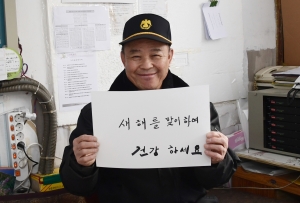 새해를 맞이하여
건강 하세요